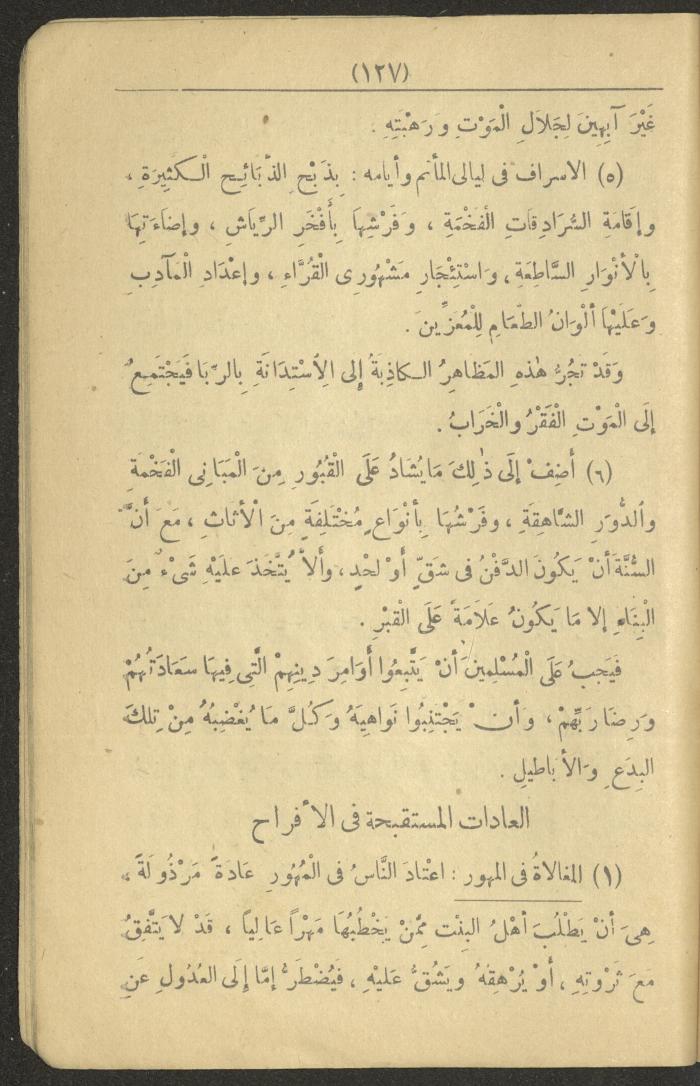 (١٢٧)
غَيْرَ آبِهِينَ لِجَلَالِ الْمَوْتِ وَرَهْبَتِهِ .
(٥) الاسراف فى ليالى المأتم وأيامه : بِذَبْحِ الذَّبَائِحِ الْكَثِيرَةِ ،
وإقَامَةِ السُّرَادِقَاتِ الْفَخْمَةِ ، وَفَرْشِهَا بِأَفْخَرِ الرِّيَاشِ ، وإضَاءَتِهَا
بِالْأَنْوَارِ السَّاطِعَةِ ، وَاسْتِئْجَارِ مَشْهُورِى الْقُرَّاءِ ، وإعْدَادِ الْمَآدِبِ
وَعَلَيْهَا أَلْوَانُ الطَّعَامِ لِلْمُعَزِّينَ .
وَقَدْ تَجُرُّ هٰذِهِ المَظَاهِرُ الكَاذِبَةُ إلى الِاسْتِدَانَةِ بِالرِّبَا فَيَجْتَمِعُ
إلَى الْمَوْتِ الْفَقْرُ والْخَرَابُ .
(٦) أَضِفْ إلَى ذٰلِكَ مَا يُشَادُ عَلَى الْقُبُورِ مِنَ الْمَبَانِى الْفَخْمَةِ
والدُّورِ الشَّاهِقَةِ ، وفَرْشُهَا بِأَنْوَاعٍ مُخْتَلِفَةٍ مِنَ الْأَثَاثِ ، مَعَ أَنَّ
السُّنَّةَ أَنْ يَكُونَ الدَّفْنُ فى شَقٍّ أَوْ لَحْدٍ ، وَأَلاَّ يُتَّخَذَ عَلَيْهِ شَىْءٌ مِنَ
الْبِنَاءِ إلا مَا يَكُونُ عَلَامَةً عَلَى الْقَبْرِ .
فَيَجِبُ عَلَى الْمُسْلِمِينَ أَنْ يَتَّبِعُوا أَوَامِرَ دِينِهِمْ الَّتِى فِيهَا سَعَادَتُهُمْ
وَرِضَا رَبِّهِمْ ، وَأَنْ يَجْتَنِبُوا نَوَاهِيَهُ وَكُلَّ مَا يُغْضِبُهُ مِنْ تِلْكَ
البِدَعِ وَالأَبَاطِيلِ .
العادات المستقبحة فى الأفراح
(١) المغالاةُ فى المهور : اعْتَادَ النَّاسُ فى الْمُهُورِ عَادَةً مَرْذُولَةً ،
هِىَ أَنْ يَطْلُبَ أَهْلُ البِنْتِ مِمَّنْ يَخْطُبُهَا مَهْراً عَالِياً ، قَدْ لا يَتَّفِقُ
مَعَ ثَرْوَتِهِ ، أَوْ يُرْهِقُهُ وَيَشُقُّ عَلَيْهِ ، فَيُضْطَرُّ إمَّا إلَى العُدُولِ عَنِ